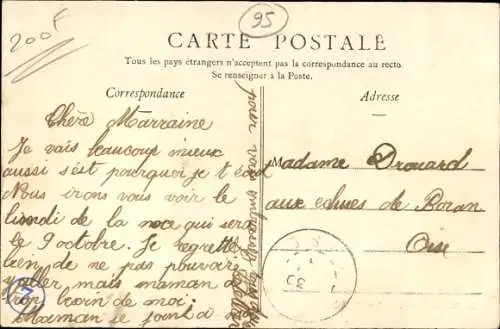 200F
95
CARTE POSTALE
Tous les pays étrangers n'acceptent pas la correspondance au recto
Se renseigner à la Poste.
Correspondance
Chère Marraine
Je vais beaucoup mieux
aussi s'est pourquoi je t'écrit
Nous irons vous voir le
lundi de la noce qui sera
le 9 octobre. Je regrette
bien de ne pas pouvoir
aller mais maman a
trop besoin de moi.
Maman se joint à
pour vous embrasser
Adresse
Madame Drouard
aux écluses de Boran
Oise